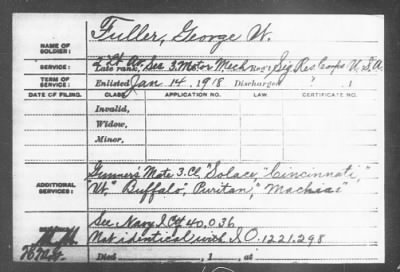 NAME OF SOLDIER: Fuller, George W.
SERVICE: Late rank, Sec 3. Motor Mech Reg't Sig Res Corps U.S.A.
TERM OF SERVICE: Enlisted Jan. 14. 1918. Discharged " , 1
DATE OF FILING. CLASS. APPLICATION NO. LAW. CERTIFICATE NO.
Invalid,
Widow,
Minor,
Gunner's Mate 3. Cl. "Solace, "Cincinnati,"
ADDITIONAL SERVICES: "W." Buffalo", Puritan," "Machias"
See Navy I Ctf 40,036
Not identical with I.O. 1221.298
Died , 1 , at